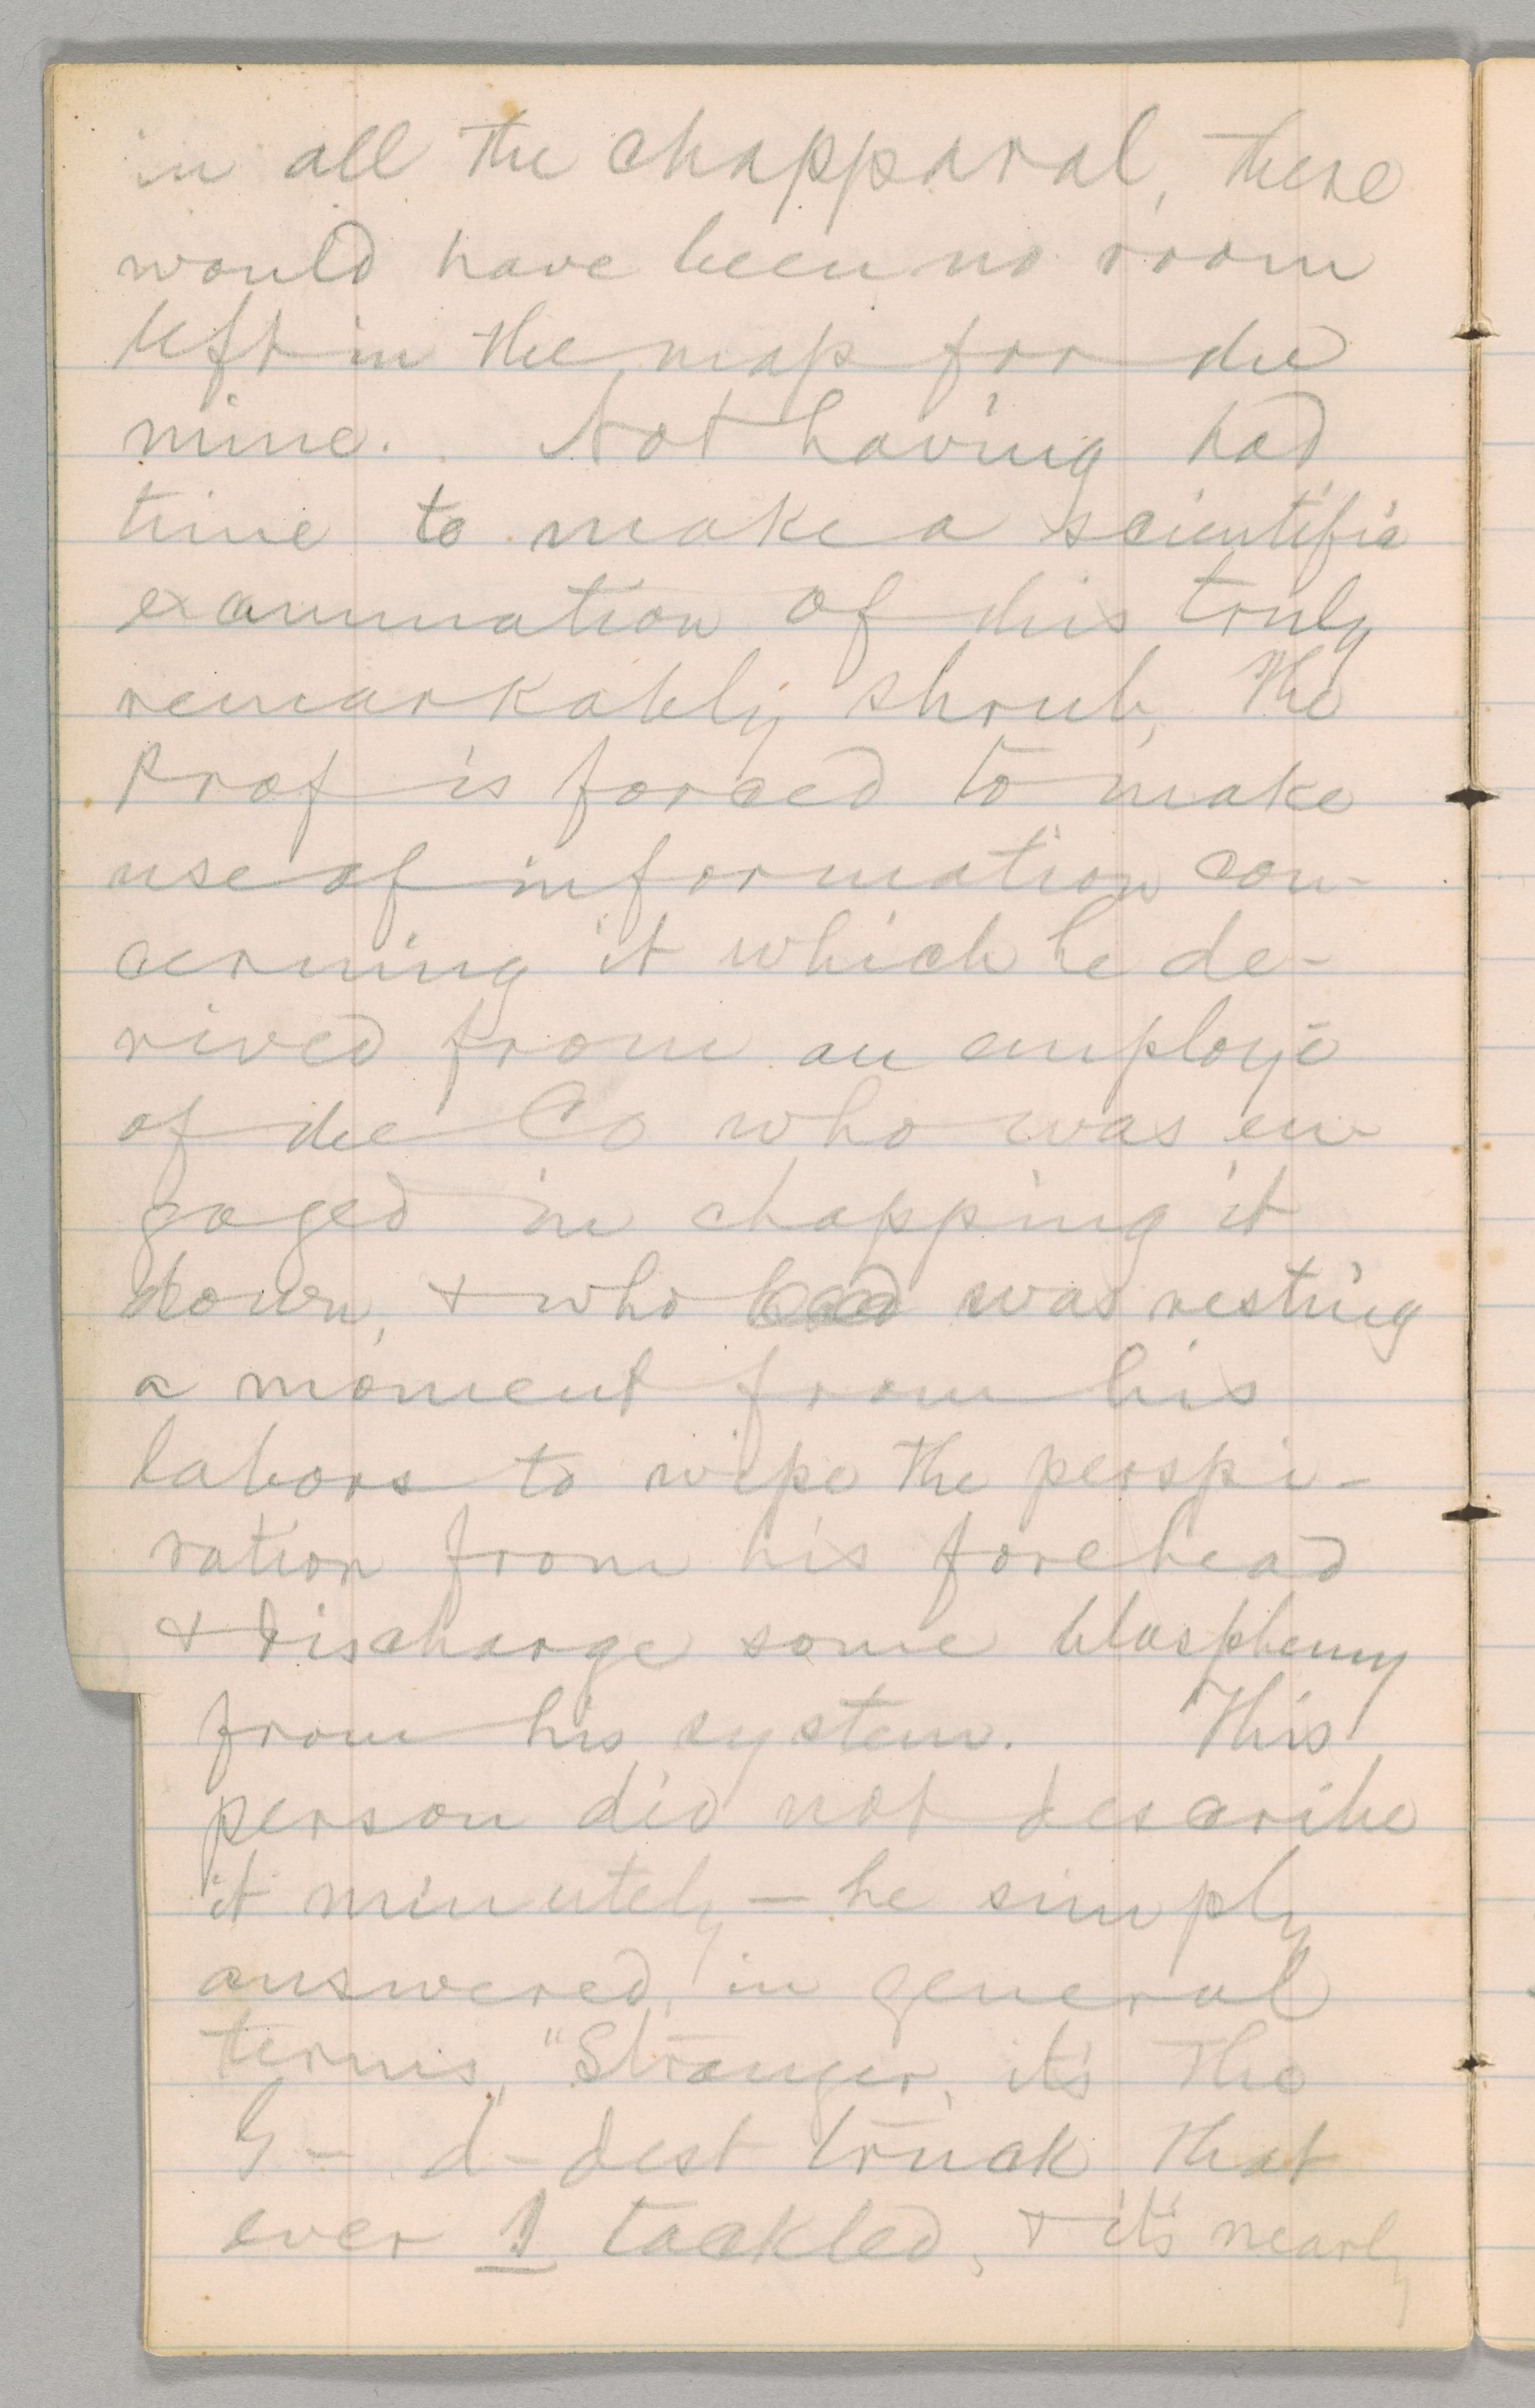 in all the chapparal, there
would have been no room
left in the map for the
mine. Not having had
time to make a scientific
examination of this truly
remarkably shrub, the
Prof is forced to make
use of information con-
cerning it which he de-
rived from an employé
of the Co who was en-
gaged in chopping it
down, & who was resting
a moment from his
labors to wipe the perspi-
ration from his forehead
& discharge some blasphemy
from his system. This
person did not describe
it minutely — he simply
answered, in general
terms, "Stranger, it's the
G— d-dest truck that
ever I tackled, & it's nearly